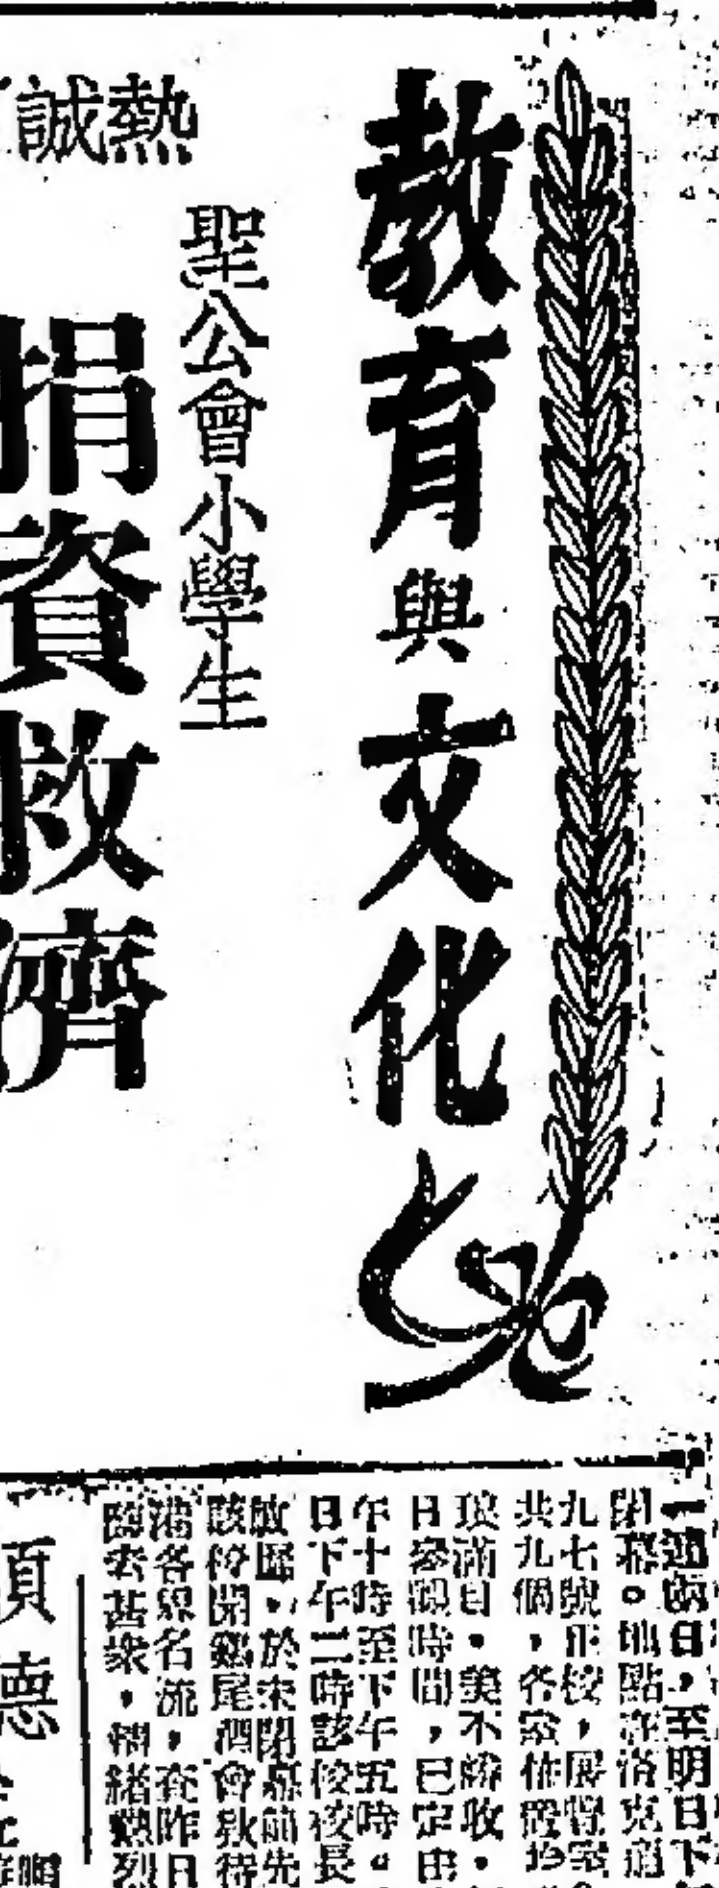 教育與文化
聖公會小學生
熱誠
捐資救濟
日,至明日下
閉幕。地點在洛克道
九七號正校,展覽室
共九個,各室佈置
琅滿目。美不勝收。
日參觀時間,已定由
午十時至下午五時。
日下午二時該校校長
啟歸,於未閉幕前先
該校開鷄尾酒會欵待
港各界名流,查昨日
臨去甚衆,情緒熱烈
項德